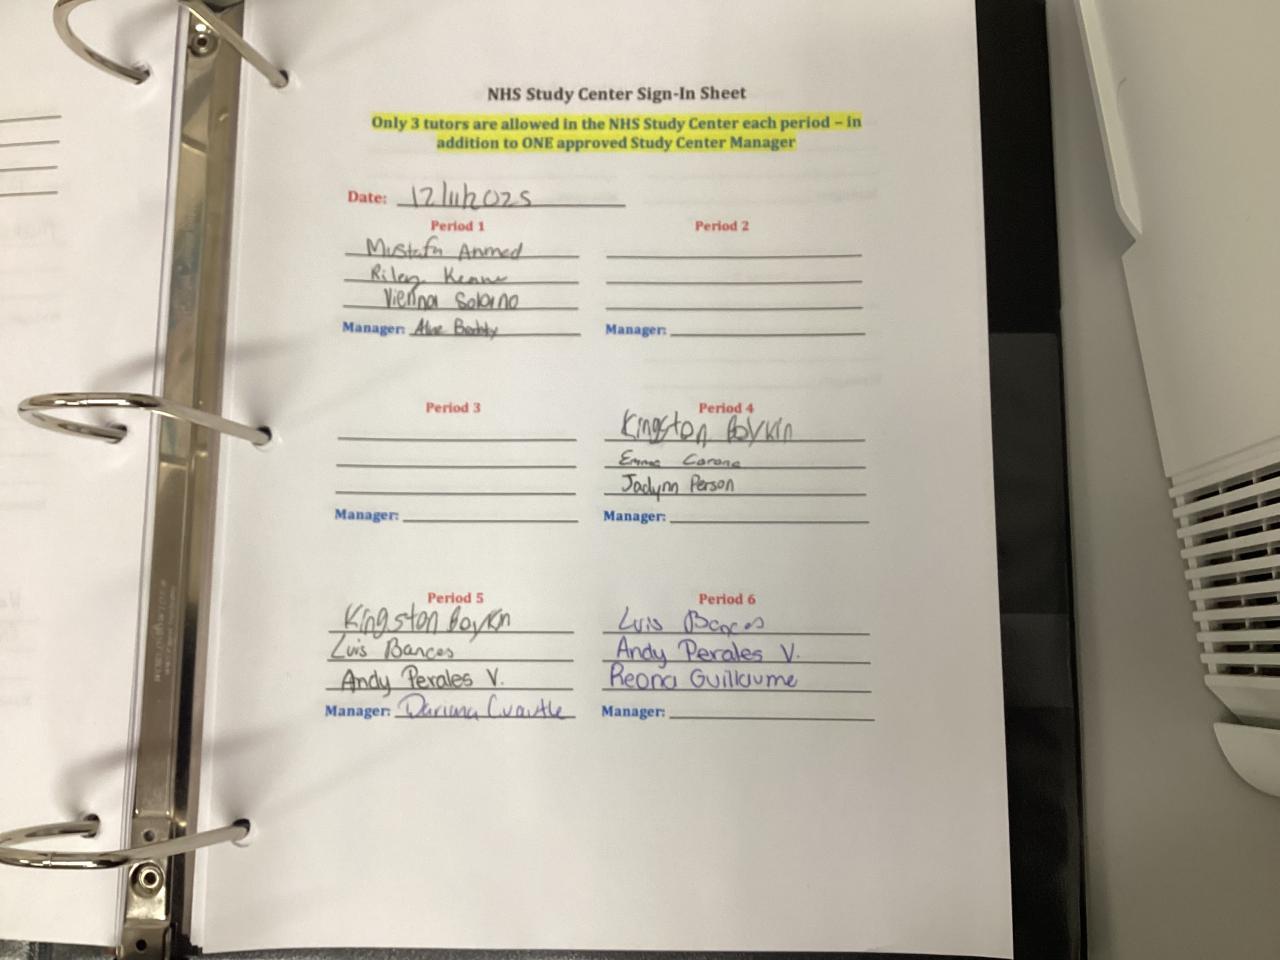 NHS Study Center Sign-In Sheet
Only 3 tutors are allowed in the NHS Study Center each period – in
addition to ONE approved Study Center Manager
Date: 12/11/2025
Period 1
Mustafa Ahmed
Riley Keane
Vienna Solano
Manager:
Period 2
Manager:
Period 3
Manager:
Period 4
Kingston Boykin
Emma Corona
Jadynn Person
Manager:
Period 5
Kingston Boykin
Luis Bances
Andy Perales V.
Manager: Dariana Cuautle
Period 6
Luis Bances
Andy Perales V.
Reona Guillaume
Manager: